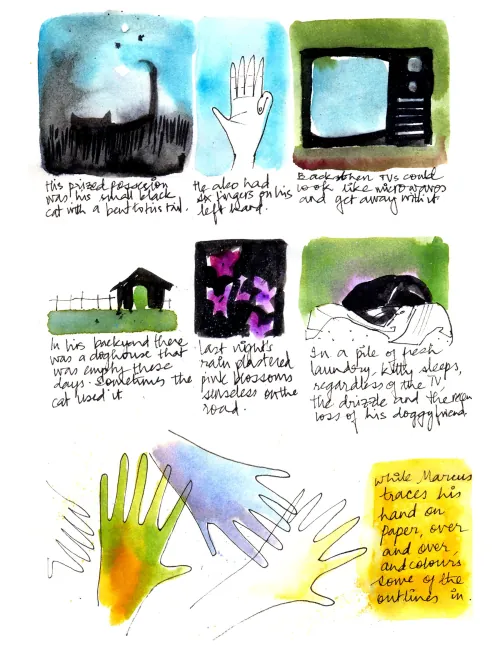 His prized possession
was his small black
cat with a bent lotis tail.
He also had
six fingers on his
left hand.
Back when TVs could
look like microwaves
and get away with it
In his backyard there
was a doghouse that
was empty these
days. Sometimes the
cat used it
last night's
rain plastered
pink blossoms
senseless on the
road.
In a pile of fresh
laundry, kitty sleeps,
regardless of the TV,
the drizzle and the
loss of his doggy friend
while Marcus
traces his
hand on
paper, over
and over,
and colours
some of the
outlines in.